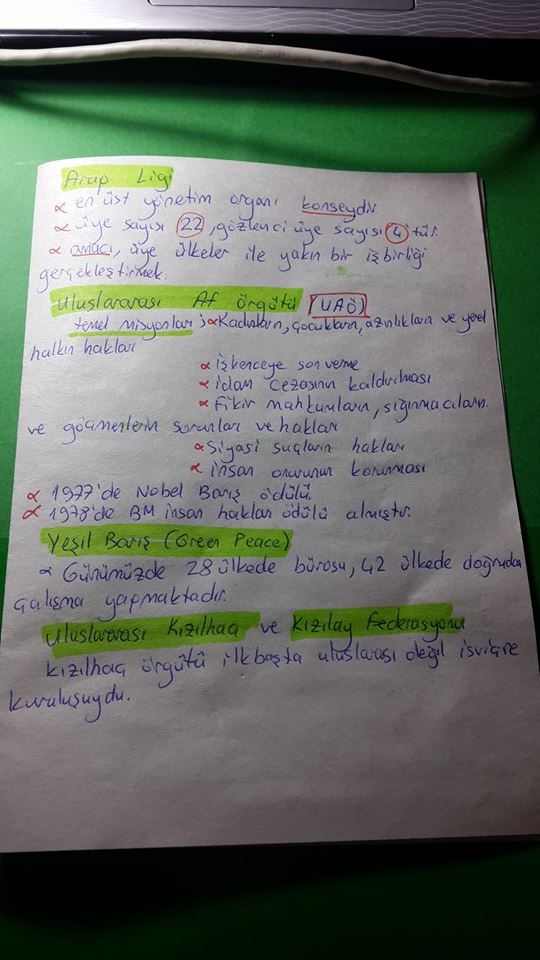 Arap Ligi
∝ en üst yönetim organı konseydir
∝ üye sayısı 22, gözlenci üye sayısı 4'tür.
∝ amacı, üye ülkeler ile yakın bir işbirliği
gerçekleştirmek.
Uluslararası Af örgütü (UAÖ)
temel misyonları; ∝ Kadınların, çocukların, azınlıkların ve yerel
halkın hakları
∝ işkenceye son verme
∝ idam cezasının kaldırılması
∝ Fikir mahkumların, sığınmacıların
ve göçmenlerin sorunları ve hakları
∝ Siyasi suçların hakları
∝ insan onurunun korunması
∝ 1977'de Nobel Barış ödülü.
∝ 1978'de BM insan hakları ödülü almıştır.
Yeşil Barış (Green Peace)
∝ Günümüzde 28 ülkede bürosu, 42 ülkede doğrudan
çalışma yapmaktadır.
Uluslararası Kızılhaç ve Kızılay Federasyonu
kızılhaç örgütü ilk başta uluslarası değil isviçre
kuruluşuydu.